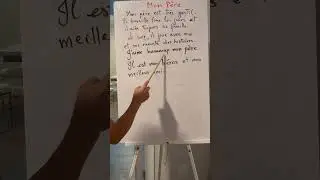 Mon Père
Mon père est très gentil.
Il travaille tous les jours et
aide toujours sa famille.
Le soir, il joue avec moi
et me raconte des histoires.
J'aime beaucoup mon père.
Il est mon héros et mon
meilleur ami.